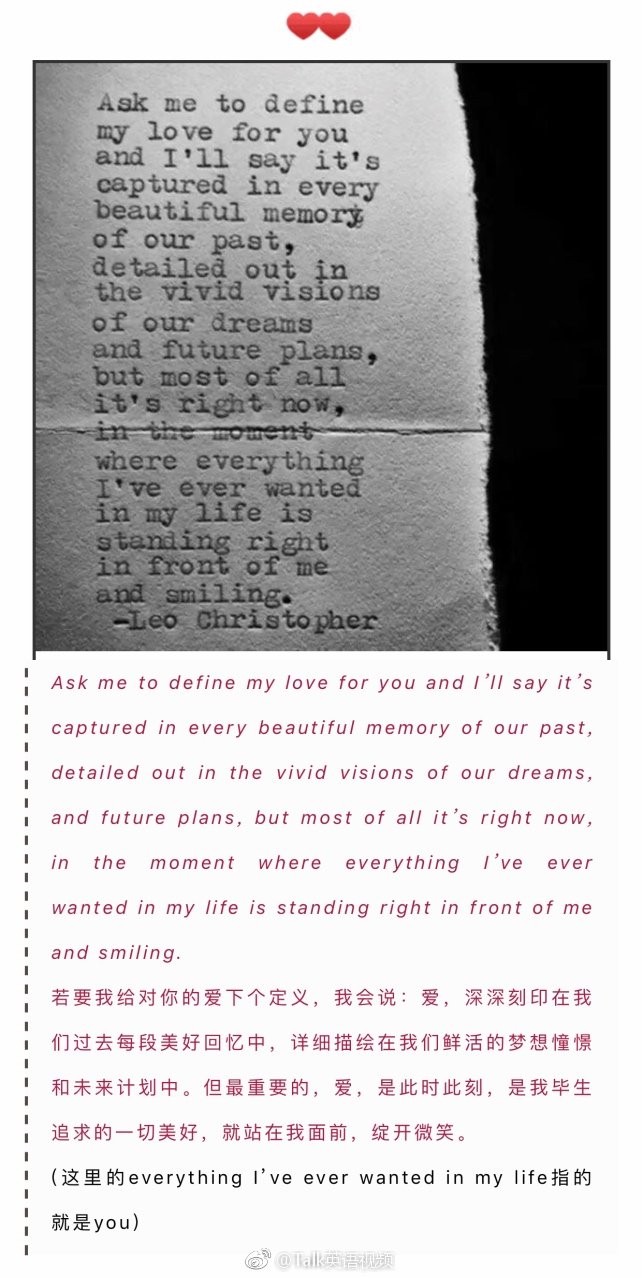 Ask me to define
my love for you
and I'll say it's
captured in every
beautiful memory
of our past,
detailed out in
the vivid visions
of our dreams
and future plans,
but most of all
it's right now,
in the moment
where everything
I've ever wanted
in my life is
standing right
in front of me
and smiling.
-Leo Christopher
Ask me to define my love for you and I’ll say it’s
captured in every beautiful memory of our past,
detailed out in the vivid visions of our dreams,
and future plans, but most of all it’s right now,
in the moment where everything I’ve ever
wanted in my life is standing right in front of me
and smiling.
若要我给对你的爱下个定义，我会说：爱，深深刻印在我
们过去每段美好回忆中，详细描绘在我们鲜活的梦想憧憬
和未来计划中。但最重要的，爱，是此时此刻，是我毕生
追求的一切美好，就站在我面前，绽开微笑。
(这里的everything I’ve ever wanted in my life指的
就是you)
@Talk英语视频